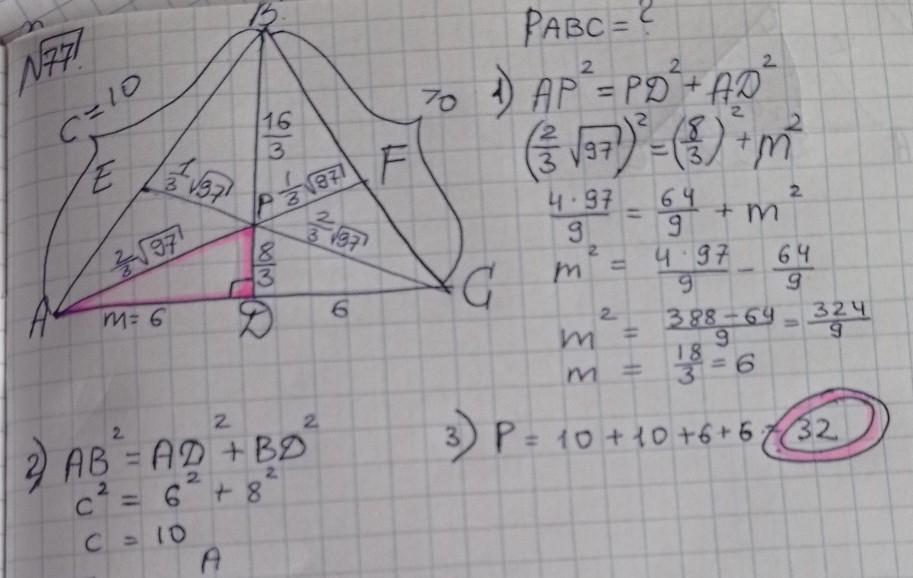 №77.
B
C=10
10
16/3
E
F
1/3 √97
P
1/3 √97
2/3 √97
2/3 √97
8/3
A
m=6
D
6
C
PABC = ?
1) AP² = PD² + AD²
(2/3 √97)² = (8/3)² + m²
4·97/9 = 64/9 + m²
m² = 4·97/9 - 64/9
m² = 388-64/9 = 324/9
m = 18/3 = 6
2) AB² = AD² + BD²
c² = 6² + 8²
c = 10
A
3) P = 10+10+6+6 = 32